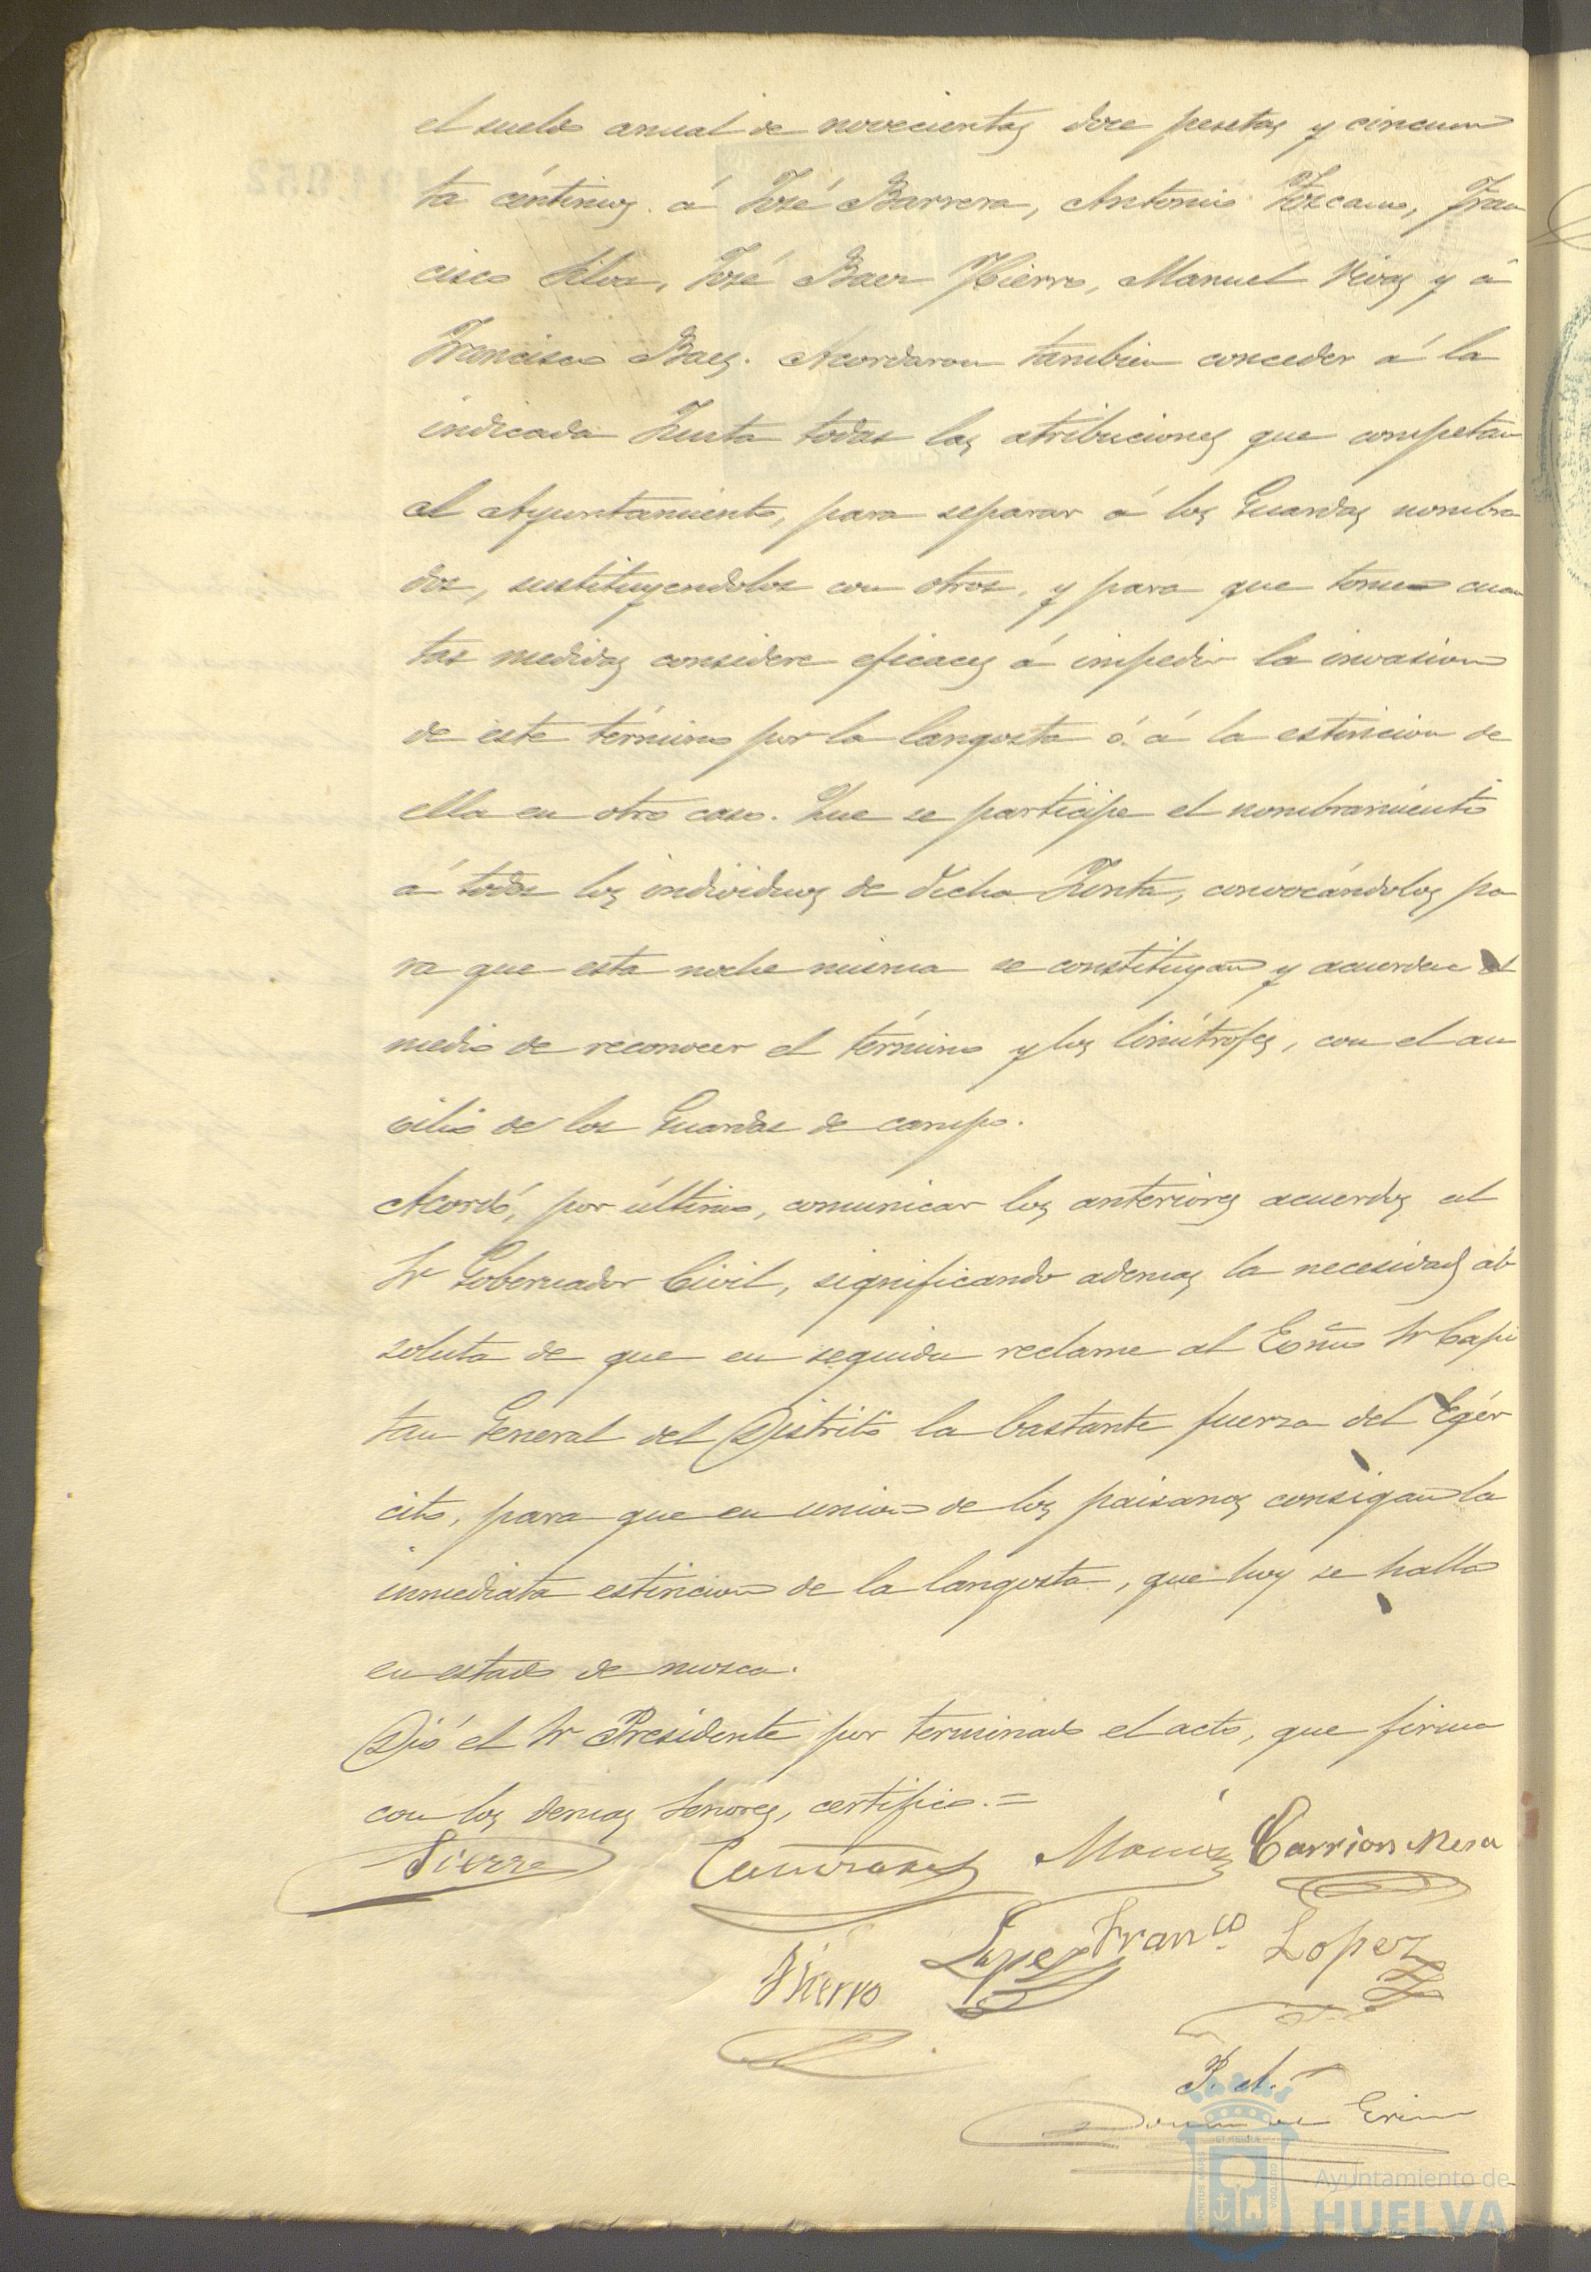 el sueldo anual de novecientas doce pesetas y cincuen
ta céntimos á José Barrera, Antonio Toscano, Fran
cisco Silva, José Baez Hierro, Manuel Rivas y á
Francisco Baez. Acordaron tambien conceder á la
indicada Junta todas las atribuciones que competan
al Ayuntamiento, para separar á los Guardas nombra
dos, sustituyendolos con otros, y para que tome cuan
tas medidas considere eficaces á impedir la invasion
de este término por la langosta ó á la estincion de
ella en otro caso. Que se participe el nombramiento
á todos los individuos de dicha Junta, convocándolos pa
ra que esta noche misma se constituyan y acuerden el
medio de reconocer el término y los limítrofes, con el au
cilio de los Guardas de campo.
Acordó, por último, comunicar los anteriores acuerdos al
Sr Gobernador Civil, significando ademas la necesidad ab
soluta de que en seguida reclame al Exmo Sr Capi
tan General del Distrito la bastante fuerza del Egér
cito, para que en union de los paisanos consigan la
inmediata estincion de la langosta, que hoy se halla
en estado de mosca.
Dió el Sr Presidente por terminado el acto, que firma
con los demas Señores, certifico.=
Sierra Carrion Mesa
Hierro Lopez Franco Lopez
P. A.
Ayuntamiento de
HUELVA